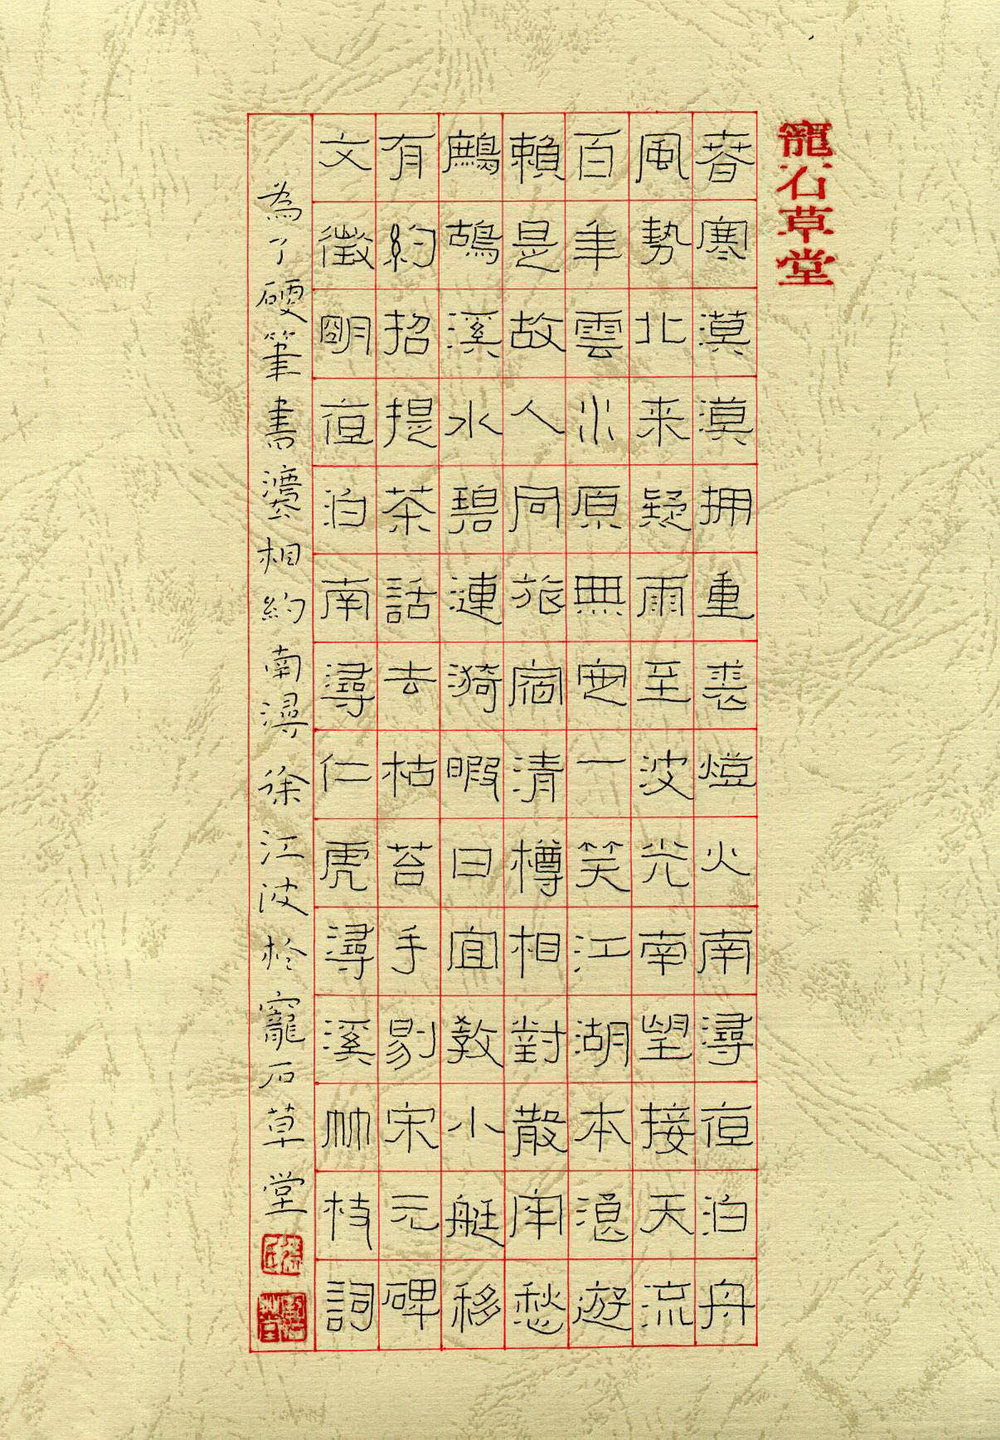 寵石草堂
春寒漠漠拥重裘燈火南潯夜泊舟
風勢北来疑雨至波光南望接天流
百年雲水原無定一笑江湖本浪遊
賴是故人同旅宿清樽相對散牢愁
鷓鴣溪水碧漣漪暇日宜教小艇移
有約招提茶話去枯苔手剔宋元碑
文徵明夜泊南潯仁虎潯溪竹枝詞
為了硬筆書相約南潯徐江波於寵石草堂